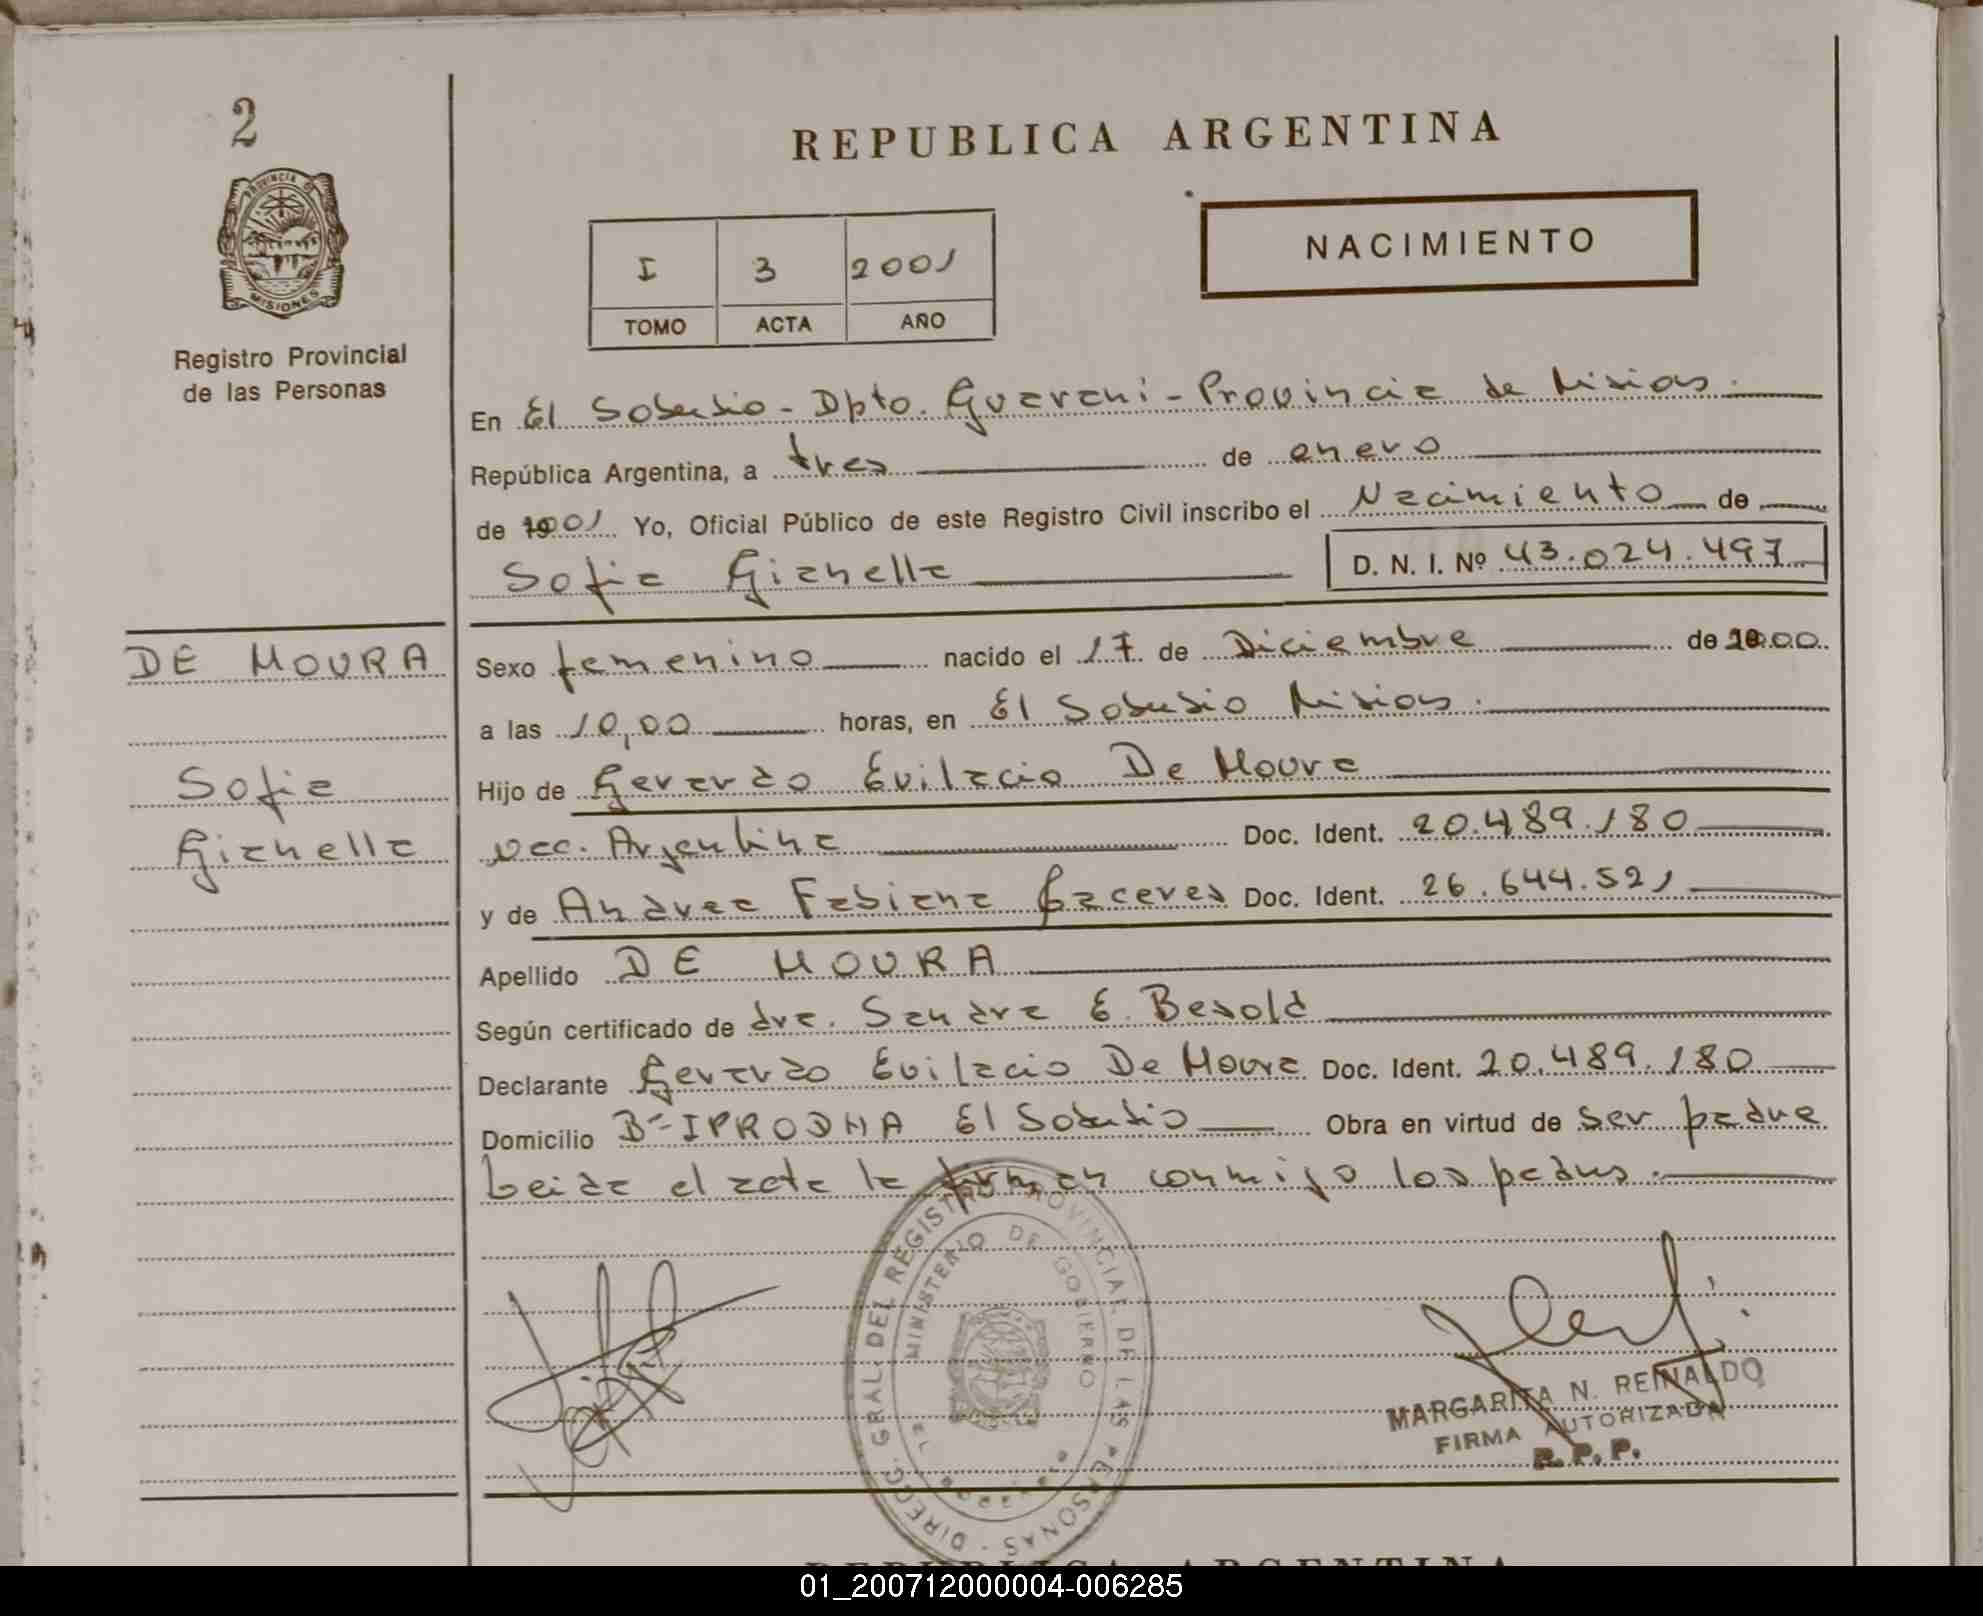 2
REPUBLICA ARGENTINA
PROVINCIA DE
MISIONES
Registro Provincial
de las Personas
NACIMIENTO
I 3 2001
TOMO ACTA AÑO
En El Soberbio - Dpto. Guarani - Provincia de Misiones.
República Argentina, a tres de enero
de 2001 Yo, Oficial Público de este Registro Civil inscribo el Nacimiento de
Sofia Gianella D. N. I. Nº 43.024.497
DE MOURA
Sofia
Gianella
Sexo femenino nacido el 17 de Diciembre de 2000.
a las 10,00 horas, en El Soberbio Misiones.
Hijo de Gerardo Evilacio De Moura
nac. Argentina Doc. Ident. 20.489.180
y de Andrea Fabiana Caceres Doc. Ident. 26.644.521
Apellido DE MOURA
Según certificado de dra. Sandra E. Besold
Declarante Gerardo Evilacio De Moura Doc. Ident. 20.489.180
Domicilio Bº IPRODHA El Soberbio Obra en virtud de ser padre
Leida el acta la firman conmigo los padres.
DIRECC. GRAL. DEL REGISTRO PROVINCIAL DE LAS PERSONAS
MINISTERIO DE GOBIERNO
EL SOBERBIO
MARGARITA N. REINALDO
FIRMA AUTORIZADA
R.P.P.
REPUBLICA ARGENTINA
01_200712000004-006285